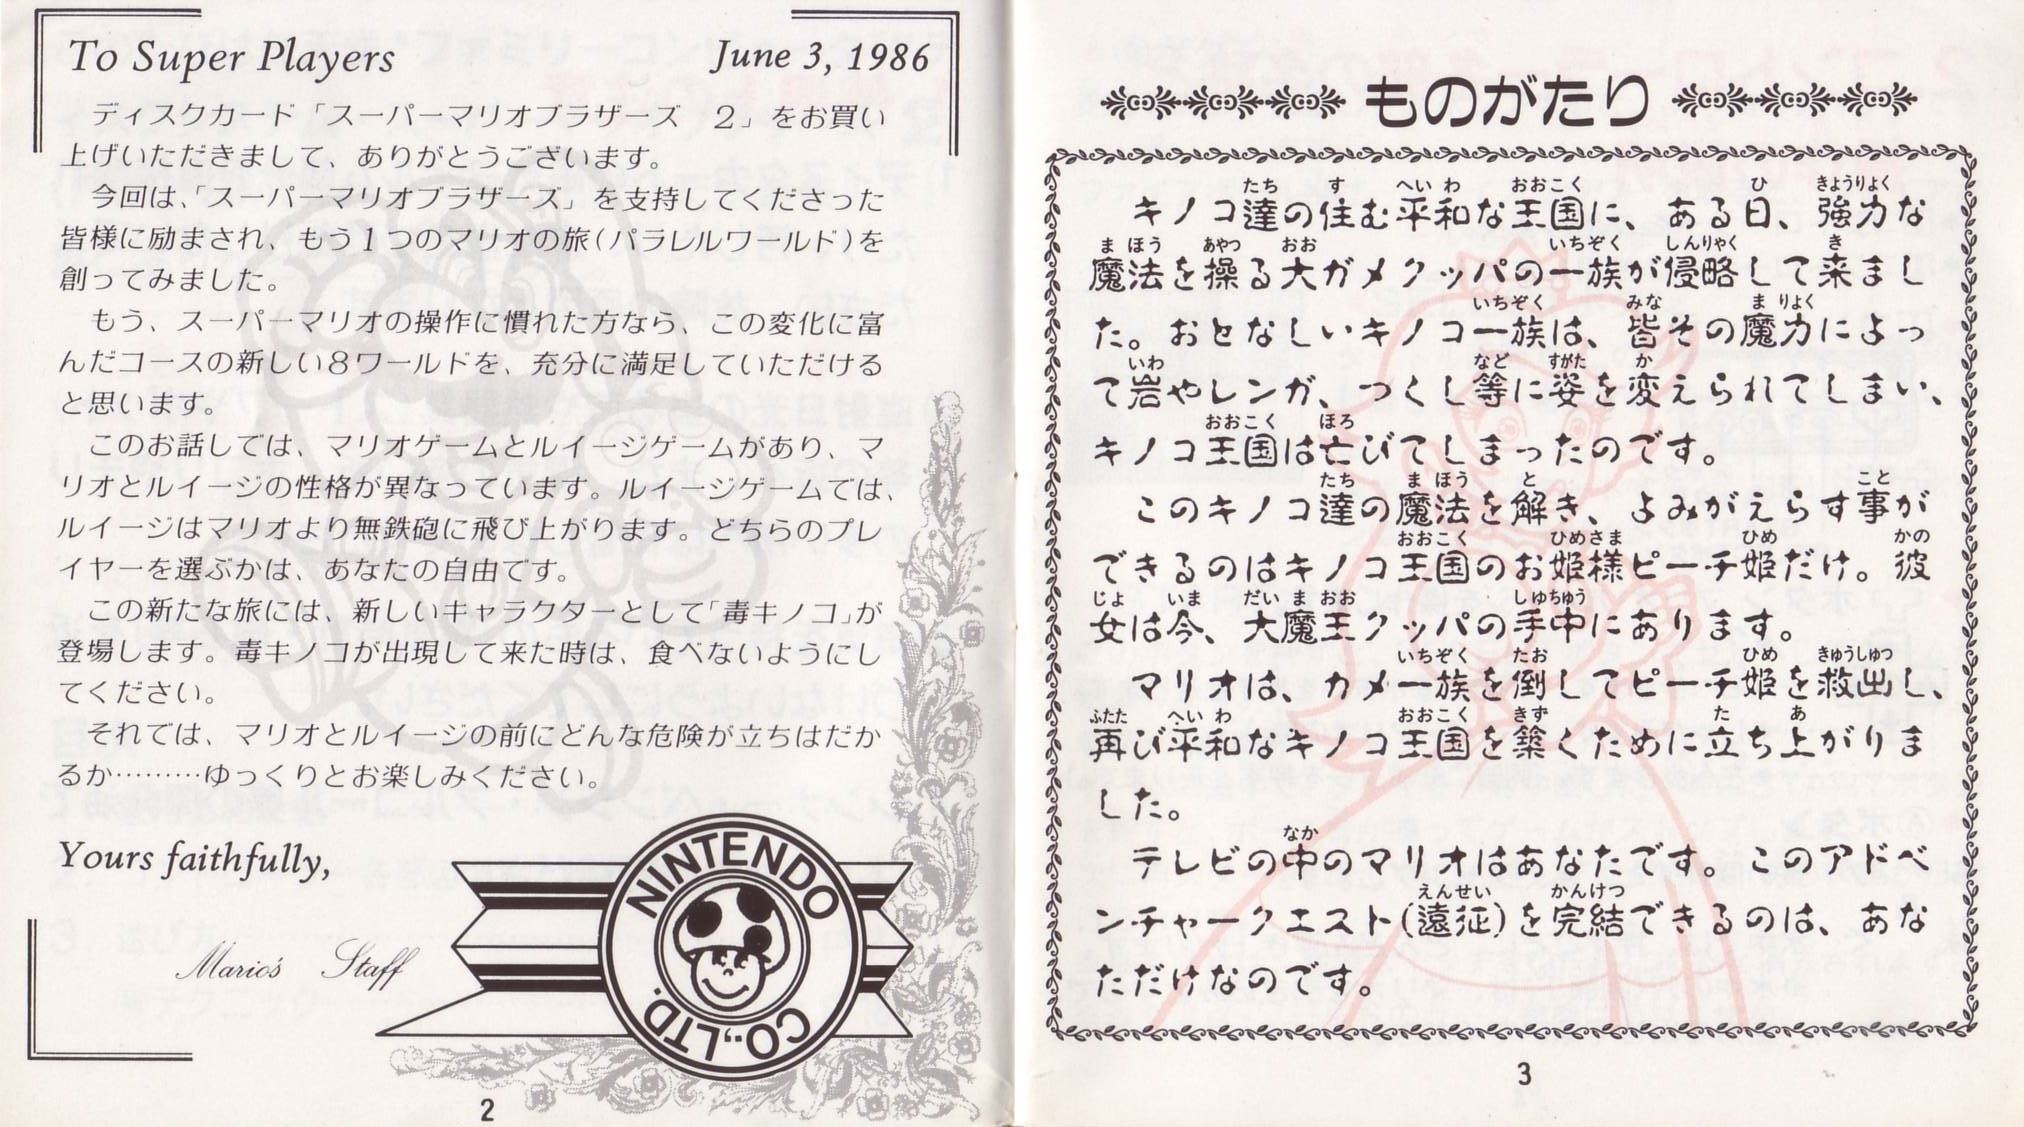 To Super Players
June 3, 1986
ディスクカード「スーパーマリオブラザーズ 2」をお買い
上げいただきまして、ありがとうございます。
今回は、「スーパーマリオブラザーズ」を支持してくださった
皆様に励まされ、もう1つのマリオの旅(パラレルワールド)を
創ってみました。
もう、スーパーマリオの操作に慣れた方なら、この変化に富
んだコースの新しい8ワールドを、充分に満足していただける
と思います。
このお話しでは、マリオゲームとルイージゲームがあり、マ
リオとルイージの性格が異なっています。ルイージゲームでは、
ルイージはマリオより無鉄砲に飛び上がります。どちらのプレ
イヤーを選ぶかは、あなたの自由です。
この新たな旅には、新しいキャラクターとして「毒キノコ」が
登場します。毒キノコが出現して来た時は、食べないようにし
てください。
それでは、マリオとルイージの前にどんな危険が立ちはだか
るか………ゆっくりとお楽しみください。
Yours faithfully,
Mario's Staff
NINTENDO CO.,LTD.
2
ものがたり
たち す へい わ おおこく ひ きょうりょく
キノコ達の住む平和な王国に、ある日、強力な
ま ほう あやつ おお いちぞく しんりゃく き
魔法を操る大ガメクッパの一族が侵略して来まし
いちぞく みな ま りょく
た。おとなしいキノコ一族は、皆その魔力によっ
いわ など すがた か
て岩やレンガ、つくし等に姿を変えられてしまい、
おおこく ほろ
キノコ王国は亡びてしまったのです。
たち ま ほう と こと
このキノコ達の魔法を解き、よみがえらす事が
おおこく ひめさま ひめ かの
できるのはキノコ王国のお姫様ピーチ姫だけ。彼
じょ いま だい ま おお しゅちゅう
女は今、大魔王クッパの手中にあります。
いちぞく たお ひめ きゅうしゅつ
マリオは、カメ一族を倒してピーチ姫を救出し、
ふたた へい わ おおこく きず た あ
再び平和なキノコ王国を築くために立ち上がりま
した。
なか
テレビの中のマリオはあなたです。このアドベ
えんせい かんけつ
ンチャークエスト(遠征)を完結できるのは、あな
ただけなのです。
3